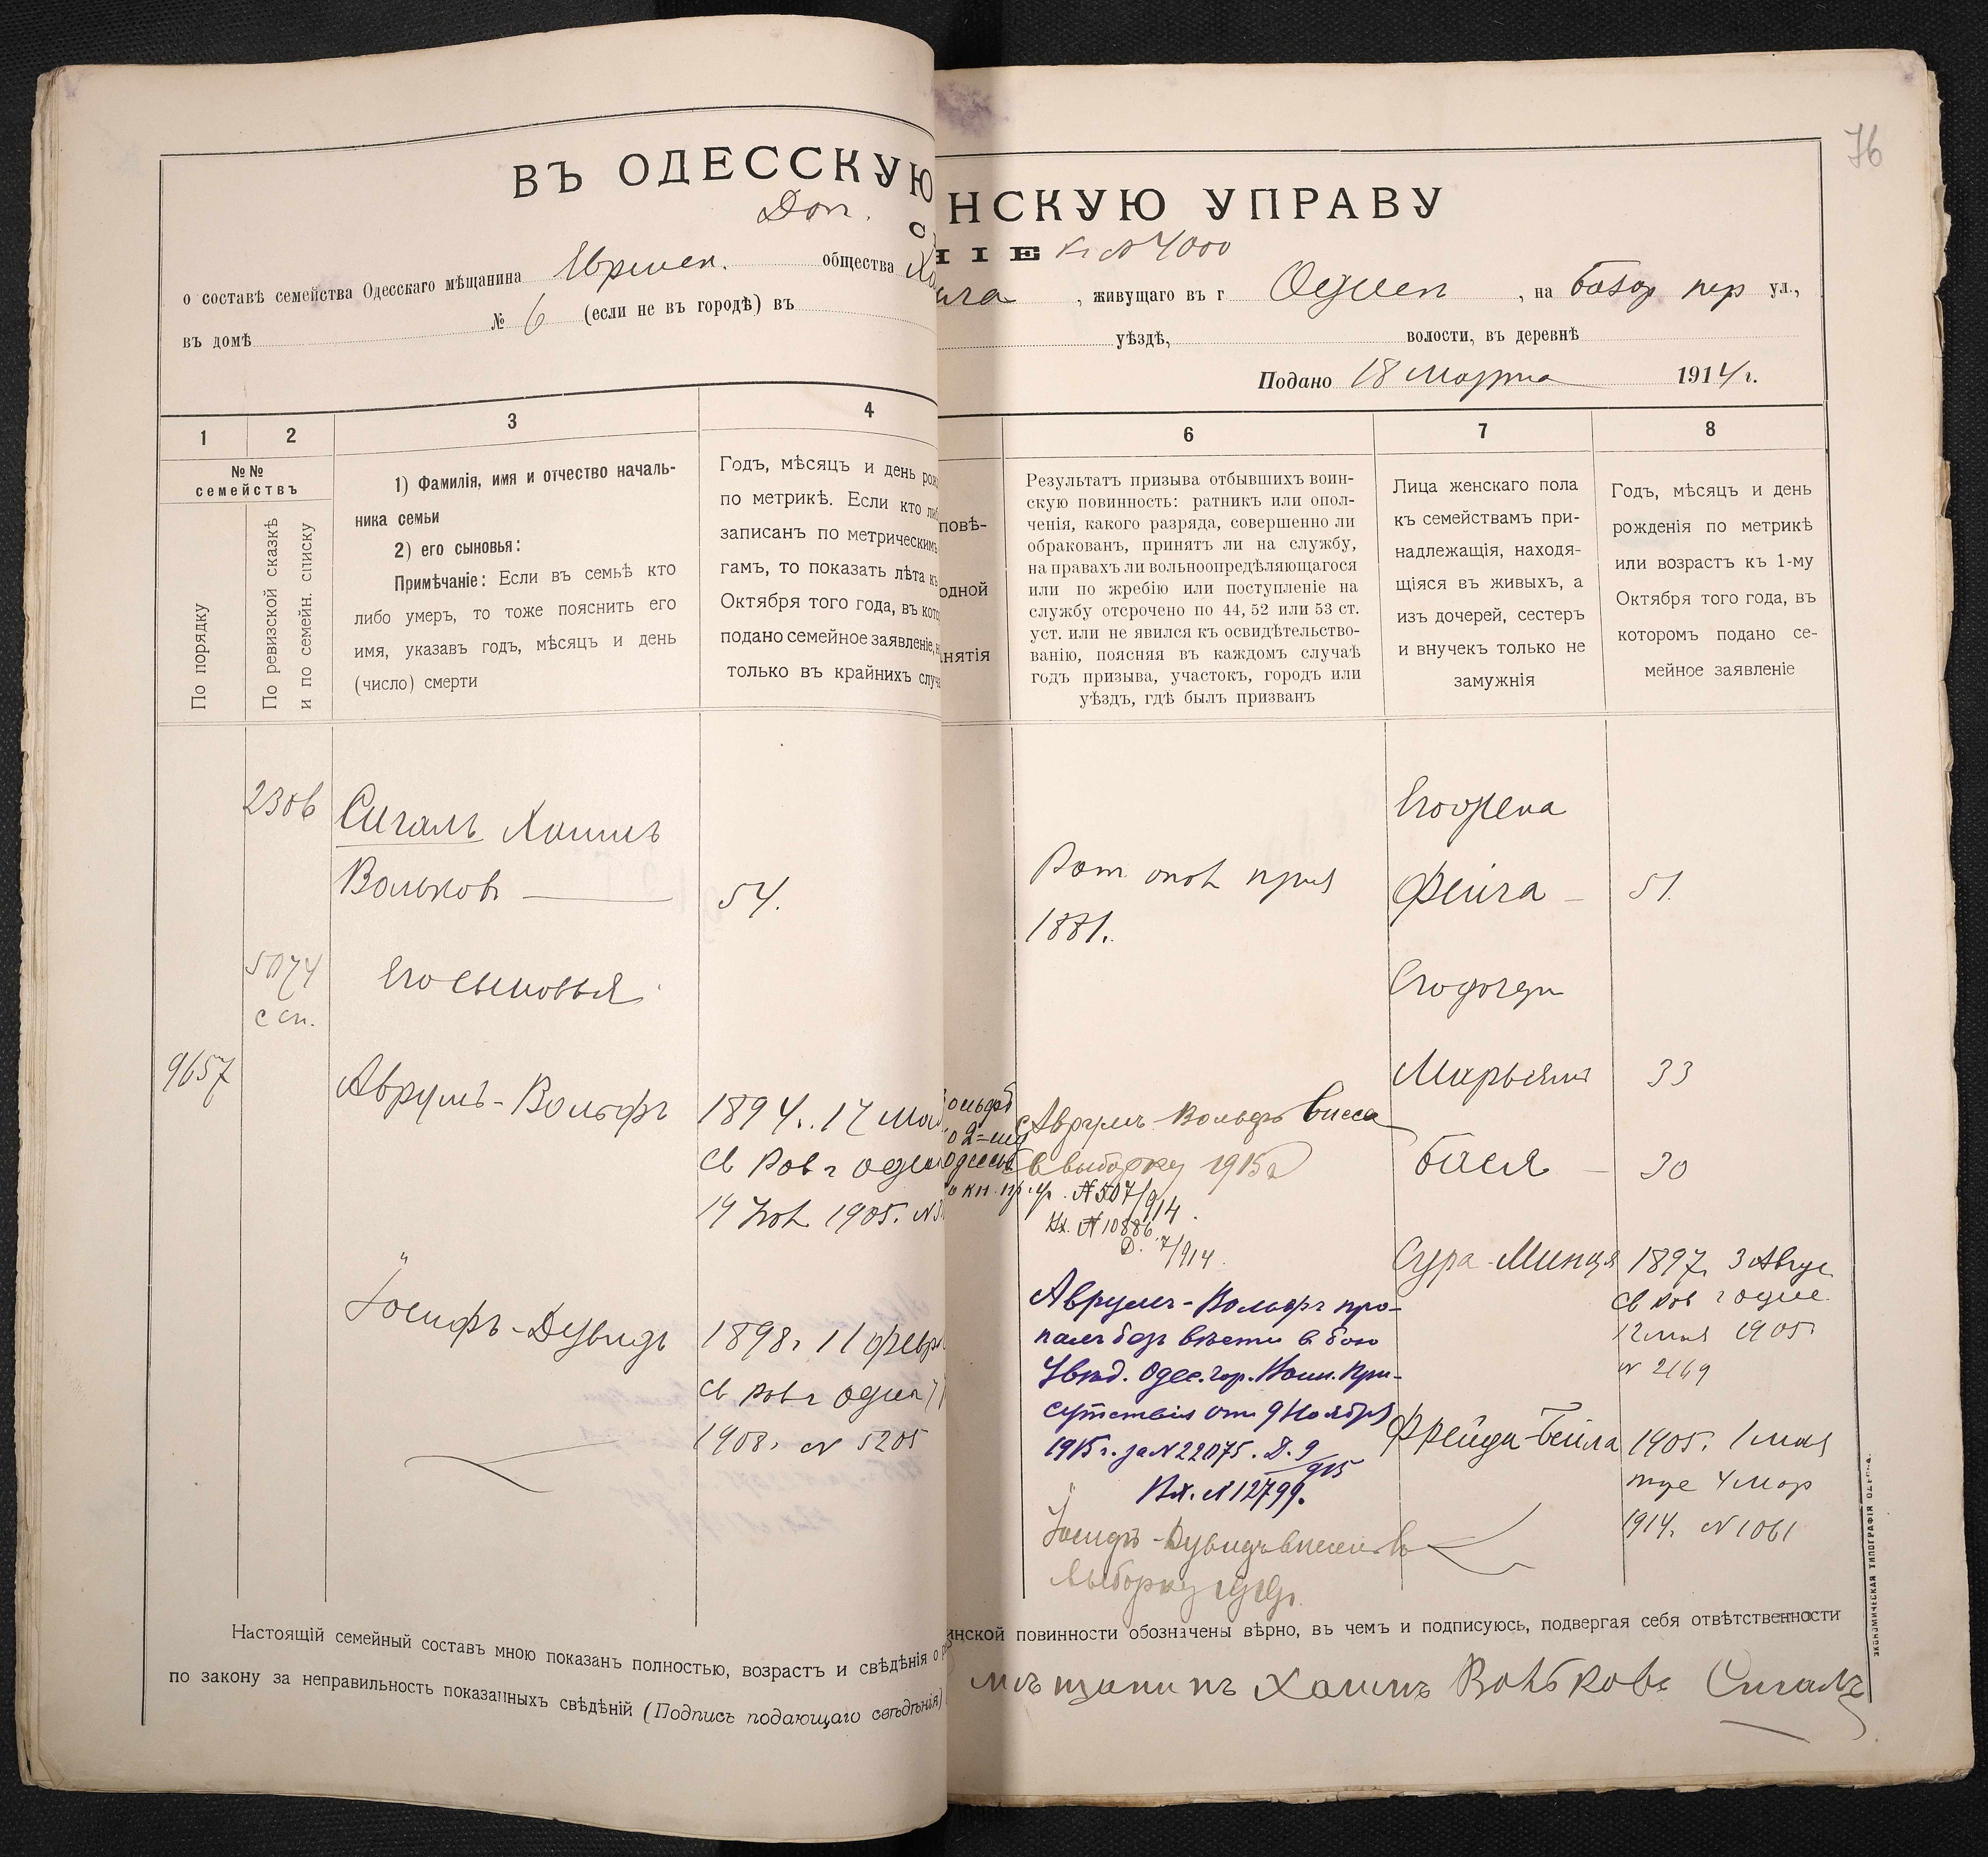 76
ВЪ ОДЕССКУЮ
НСКУЮ УПРАВУ
Доп.
ІЕ К № 4000
о составѣ семейства Одесскаго мѣщанина Евриек. общества
, живущаго въ г Одессѣ , на базар пер ул.,
въ домѣ № 6 (если не въ городѣ) въ
уѣздѣ, волости, въ деревнѣ
Подано 18 марта 1914 г.
1
2
3
4
6
7
8
№№
семействъ
По порядку
По ревизской сказкѣ
и по семейн. списку
1) Фамилія, имя и отчество началь-
ника семьи
2) его сыновья:
Примѣчаніе: Если въ семьѣ кто
либо умеръ, то тоже пояснить его
имя, указавъ годъ, мѣсяцъ и день
(число) смерти
Годъ, мѣсяцъ и день
по метрикѣ. Если кто
записанъ по метрическимъ
гамъ, то показать лѣта
Октября того года, въ
подано семейное заявленіе,
только въ крайнихъ
повѣ-
одной
нятія
Результатъ призыва отбывшихъ воин-
скую повинность: ратникъ или опол-
ченія, какого разряда, совершенно ли
обракованъ, принятъ ли на службу,
на правахъ ли вольноопредѣляющагося
или по жребію или поступленіе на
службу отсрочено по 44, 52 или 53 ст.
уст. или не явился къ освидѣтельство-
ванію, поясняя въ каждомъ случаѣ
годъ призыва, участокъ, городъ или
уѣздъ, гдѣ былъ призванъ
Лица женскаго пола
къ семействамъ при-
надлежащія, находя-
щіяся въ живыхъ, а
изъ дочерей, сестеръ
и внучекъ только не
замужнія
Годъ, мѣсяцъ и день
рожденія по метрикѣ
или возрастъ къ 1-му
Октября того года, въ
которомъ подано се-
мейное заявленіе
2306
Сигалъ Хаимъ
Вольковъ
54.
5074
с сп.
Его сыновья
9657
Аврумъ-Вольфъ
1894. 17
св Рав г
1905.
Іосифъ-Дувидъ
1898 г 11 февр
св Рав г
1908 г № 5205
Рат опол приз
1881.
Аврумъ-Вольфъ внесе
в выборку 1915 г
№ 507/914.
Вх. № 10886
Д. 7/914.
Аврумъ-Вольфъ про-
палъ безъ вѣсти в бою
Увѣд. Одес. гор. Воин. При-
сутствія отъ 9 Ноября
1915 г. за № 22075. Д. 9/915
Вх. № 12799.
Іосифъ-Дувидъ внесенъ в
выборку 1919 г.
Его жена
Фейга
51.
Его дочери
Марьямъ
33
Бася
30
Сура-Минця
1897 г 3 Авгус
св Рав г Одес
12 мая 1905
№ 2169
Фрейда-Бейла
1905. 1 мая
тже 4 мар
1914. № 1061
Настоящій семейный составъ мною показанъ полностью, возрастъ и свѣдѣнія о
инской повинности обозначены вѣрно, въ чемъ и подписуюсь, подвергая себя отвѣтственности
по закону за неправильность показанныхъ свѣдѣній (Подпись подающаго свѣдѣнія)
мѣщанинъ Хаимъ Вольковъ Сигалъ
ЭКОНОМИЧЕСКАЯ ТИПОГРАФІЯ